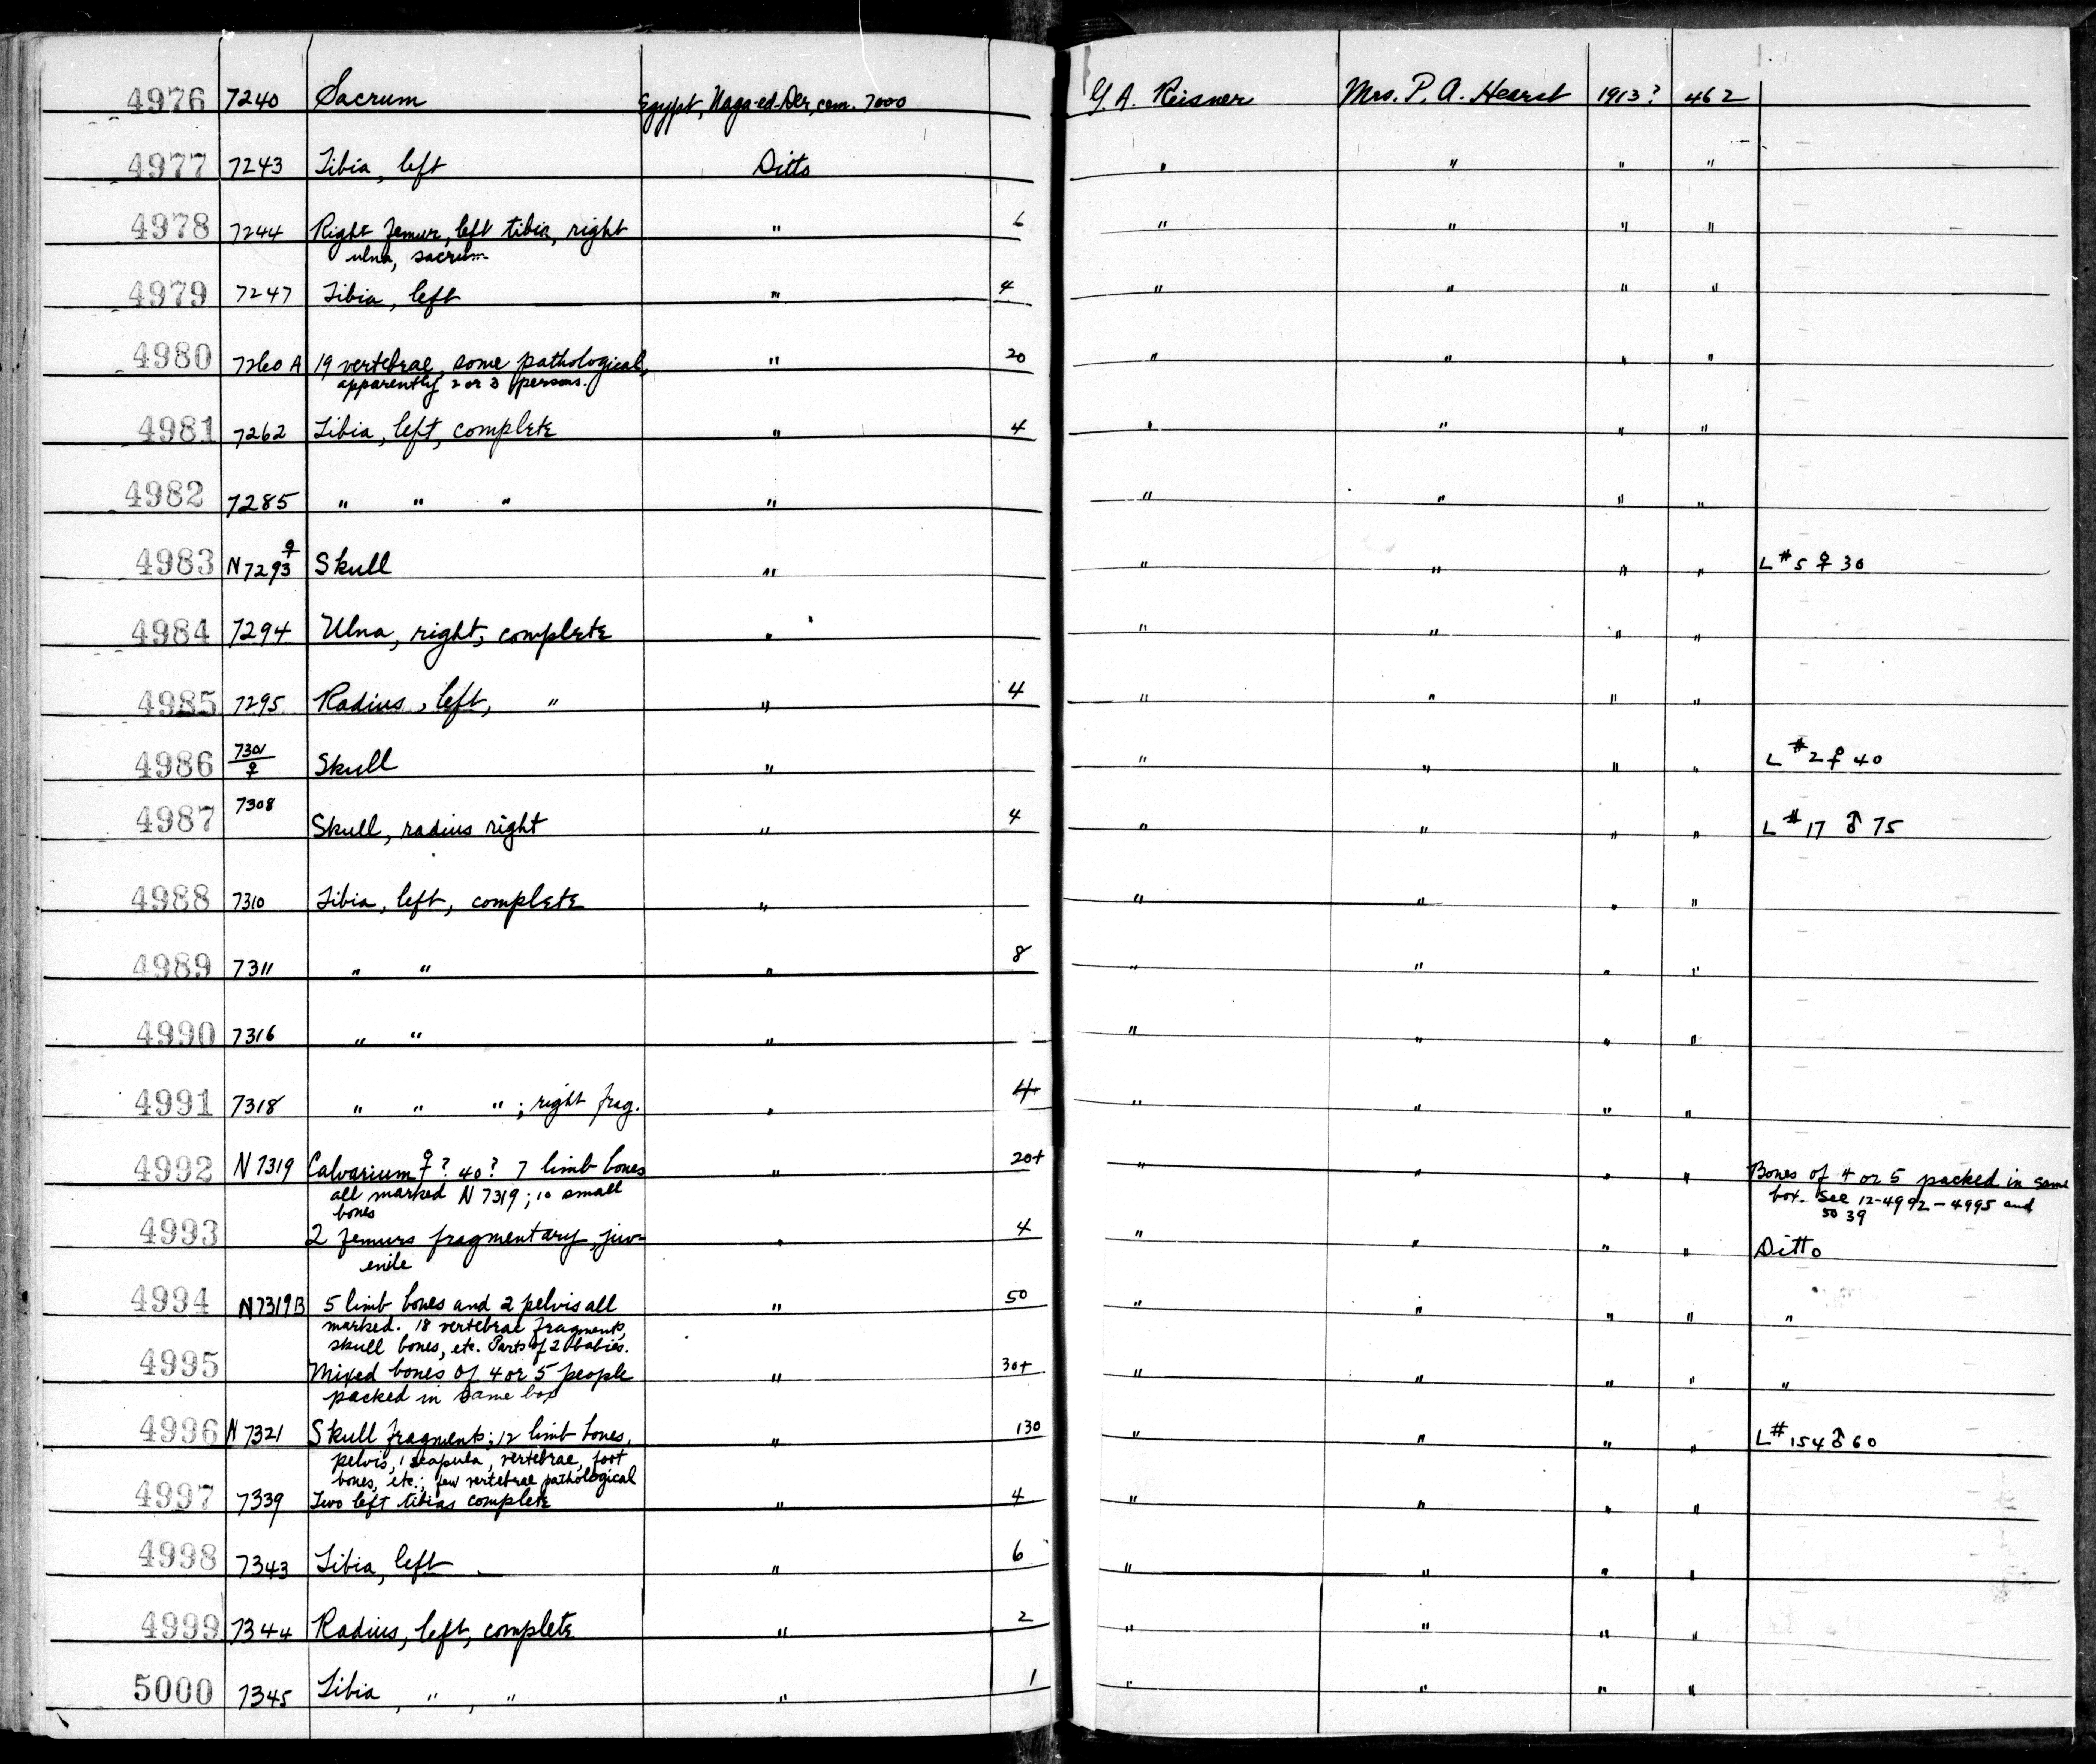 4976 7240 Sacrum Egypt, Naga-ed-Der, cem. 7000 G. A. Reisner Mrs. P. A. Hearst 1913? 462
4977 7243 Tibia, left Ditto " " " "
4978 7244 Right femur, left tibia, right " 6 " " " "
ulna, sacrum
4979 7247 Tibia, left " 4 " " " "
4980 7260 A 19 vertebrae, some pathological, " 20 " " " "
apparently 2 or 3 persons.
4981 7262 Tibia, left, complete " 4 " " " "
4982 7285 " " " " " " " "
4983 N 7293 ♀ Skull " " " " " L # 5 ♀ 30
4984 7294 Ulna, right, complete " " " " "
4985 7295 Radius, left, " " 4 " " " "
4986 7301 ♀ Skull " " " " " L # 2 ♀ 40
4987 7308 Skull, radius right " 4 " " " " L # 17 ♂ 75
4988 7310 Tibia, left, complete " " " " "
4989 7311 " " " 8 " " " "
4990 7316 " " " " " " "
4991 7318 " " " ; right frag. " 4 " " " "
4992 N 7319 Calvarium ♀? 40? 7 limb bones " 20+ " " " " Bones of 4 or 5 packed in same
all marked N 7319; 10 small box. See 12-4992-4995 and
bones 5039
4993 2 femurs fragmentary, juv- " 4 " " " " Ditto
enile
4994 N 7319 B 5 limb bones and 2 pelvis all " 50 " " " " "
marked. 18 vertebrae fragments,
skull bones, etc. Parts of 2 babies.
4995 Mixed bones of 4 or 5 people " 30+ " " " " "
packed in same box
4996 N 7321 Skull fragments; 12 limb bones, " 130 " " " " L # 154 ♂ 60
pelvis, 1 scapula, vertebrae, foot
bones, etc.; few vertebrae pathological
4997 7339 Two left tibias complete " 4 " " " "
4998 7343 Tibia, left " 6 " " " "
4999 7344 Radius, left, complete " 2 " " " "
5000 7345 Tibia, " , " " 1 " " " "